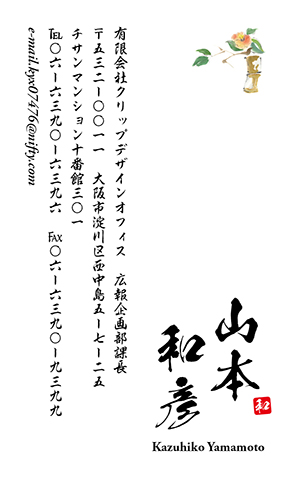 有限会社クリップデザインオフィス　広報企画部課長
〒五三二ー〇〇一一　大阪市淀川区西中島五ー七ー二五
チサンマンション十番館三〇一
TEL〇六ー六三九〇ー六三九六　FAX〇六ー六三九〇ー九三九九
e-mail.kyx07476@nifty.com
山本
和彦
和
Kazuhiko Yamamoto